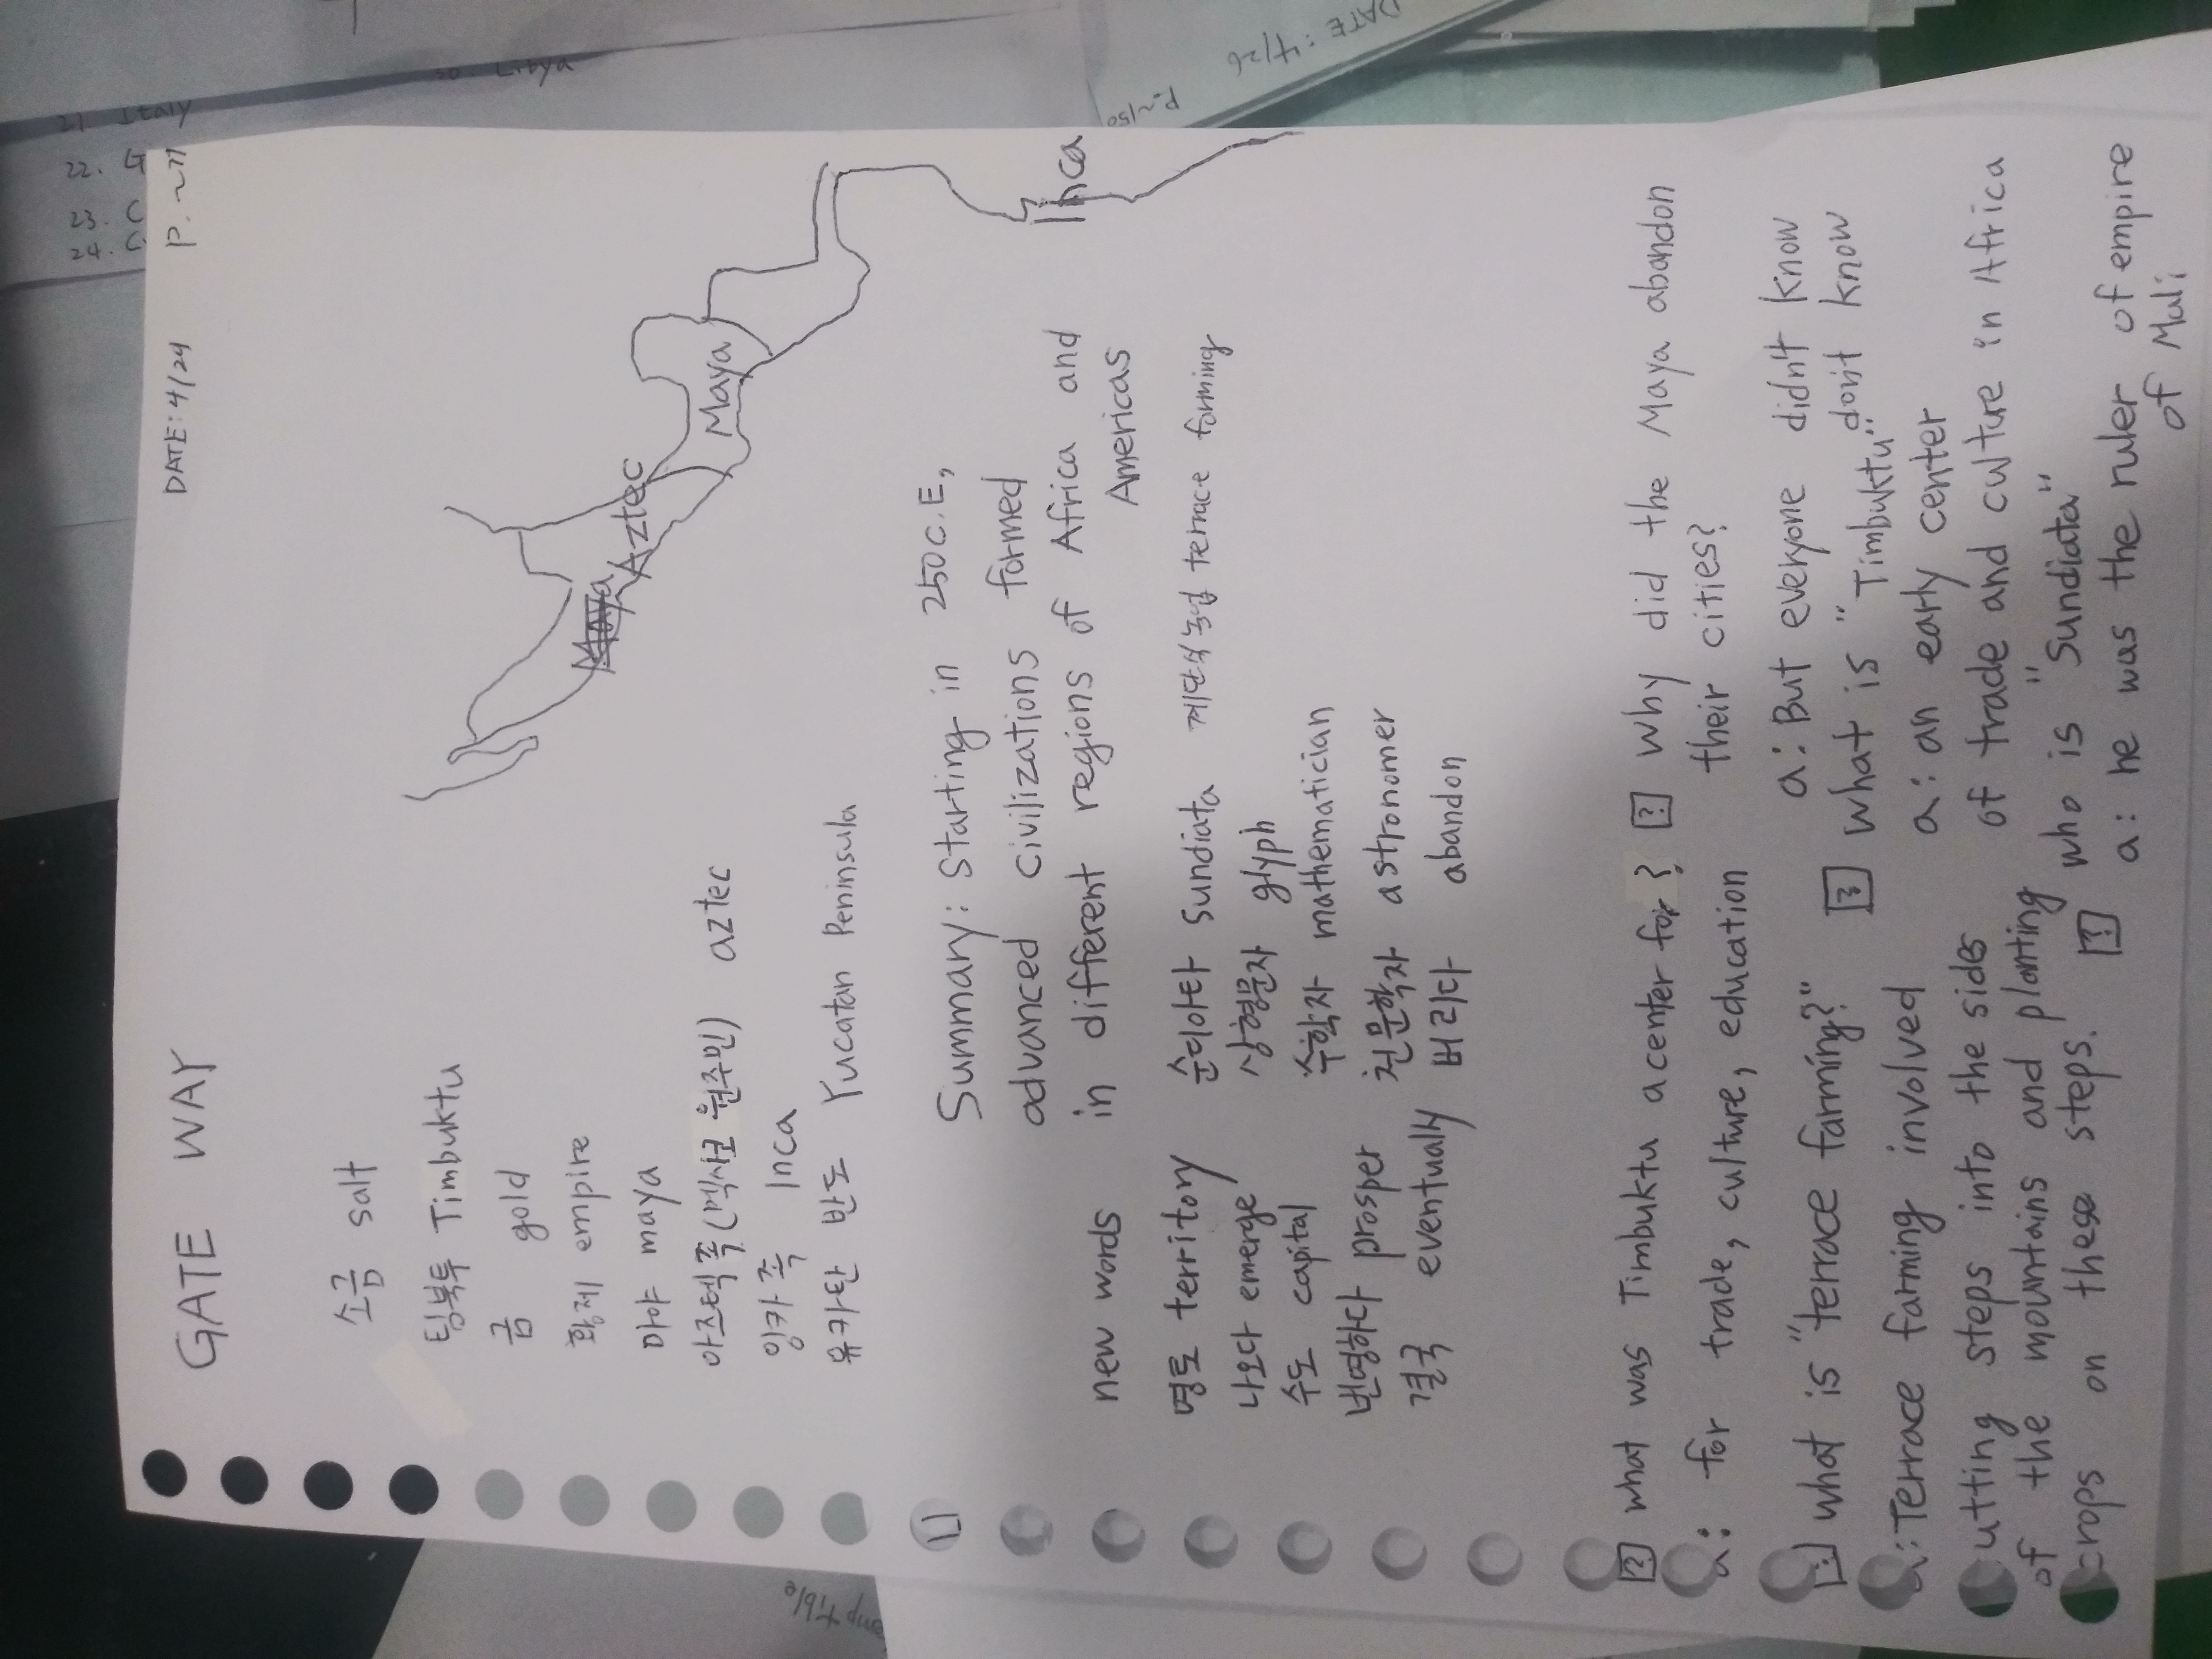 GATE WAY DATE: 4/24 P. ~77
소금 salt
팀북투 Timbuktu
금 gold
황제 empire
마야 maya
아즈텍족 (멕시코 원주민) aztec
잉카족 Inca
유카탄 반도 Yucatan Peninsula
Maya
Aztec
Maya
Inca
Summary: Starting in 250C.E,
advanced civilizations formed
in different regions of Africa and
Americas
new words
영토 territory 순디아타 Sundiata 계단식 농법 terrace forming
나오다 emerge 상형문자 glyph
수도 capital 수학자 mathematician
번영하다 prosper 천문학자 astronomer
결국 eventually 버리다 abandon
? what was Timbuktu a center for?
a: for trade, culture, education
what is "terrace farming?"
a: Terrace farming involved
cutting steps into the sides
of the mountains and planting
crops on these steps.
? why did the Maya abandon
their cities?
a: But everyone didn't know
don't know
? what is "Timbuktu"
a: an early center
of trade and culture in Africa
? who is "Sundiata"
a: he was the ruler of empire
of Mali
21 Italy
22. G
23. C
24. C
30. Libya
DATE: 4/26
P.~150